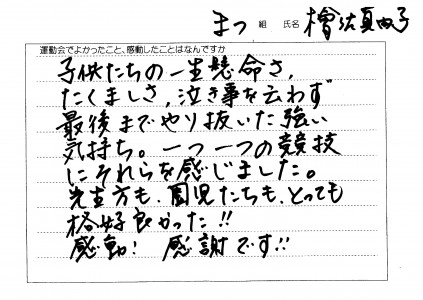 まつ 組 氏名 檜波真由子
運動会でよかったこと、感動したことはなんですか
子供たちの一生懸命さ、
たくましさ、泣き事を云わず
最後までやり抜いた強い
気持ち。一つ一つの競技
にそれらを感じました。
先生方も、園児たちも、とっても
格好良かった!!
感動! 感謝です!!